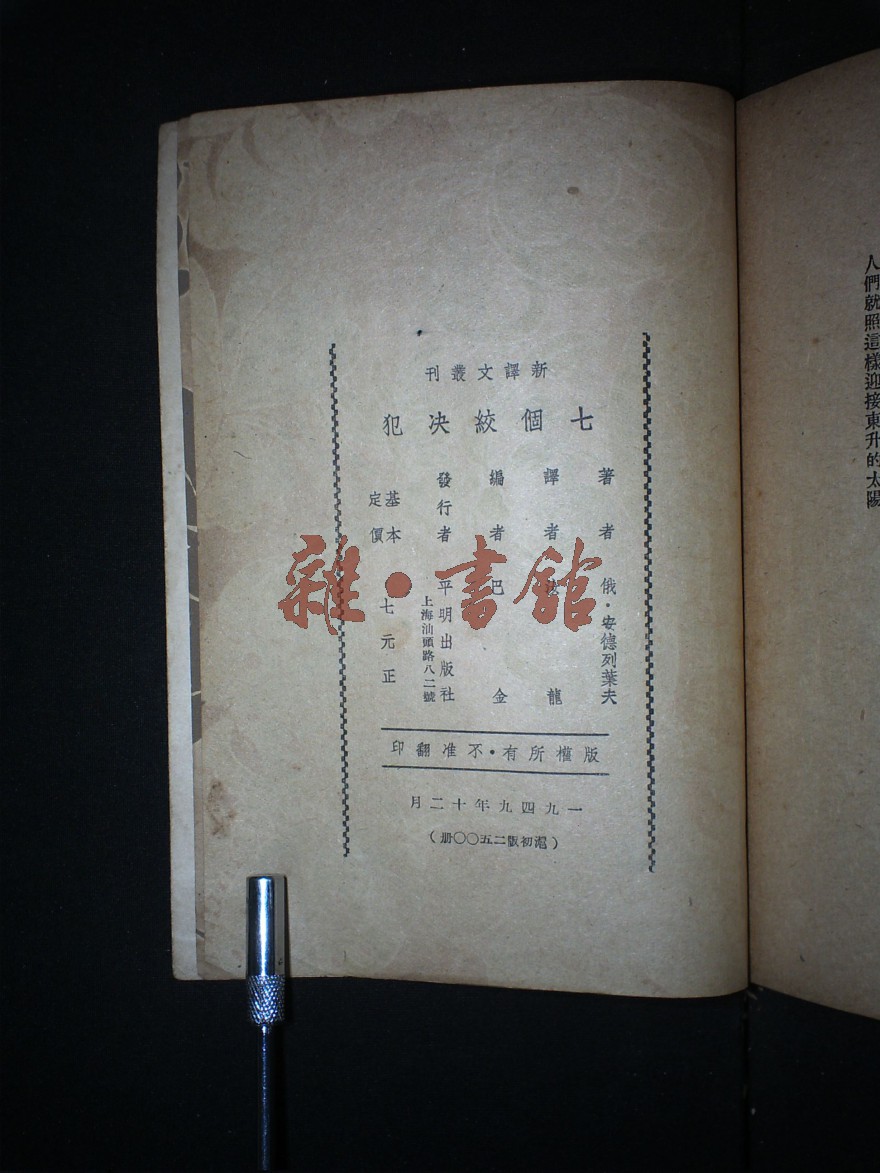 人們就照這樣迎接東升的太陽
新譯文叢刊
七個絞決犯
著者 俄·安德列葉夫
譯者 龍
編者 巴金
發行者 平明出版社
上海汕頭路八二號
基本定價 七元正
版權所有·不准翻印
一九四九年十二月
(滬初版二五〇〇册)
雜·書館